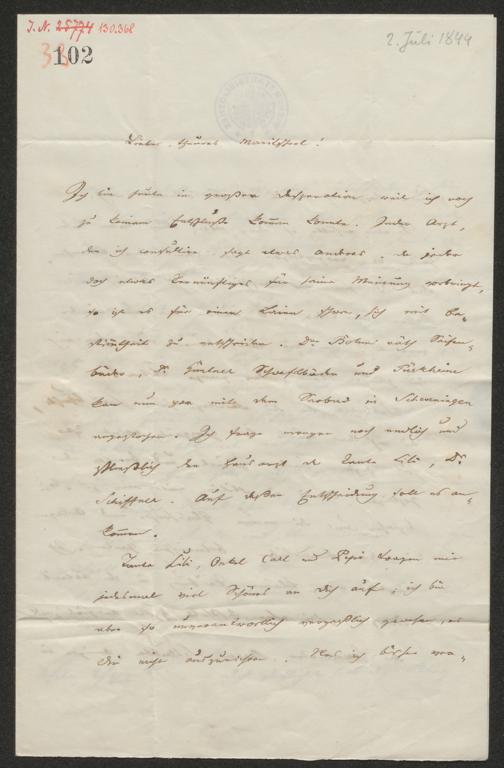 J. N. 25774 130.368
33
102
2. Juli 1844
Lieber, theures
Ich bin heute in großer Desperation, weil ich noch
zu keinem Entschluße komen konnte. Jeder Arzt,
den ich consultire, sagt etwas anderes, da jeder
doch etwas Vernünftiges für seine Meinung vorbringt,
so ist es für einen Laien schwer, sich mit Be-
stimtheit zu entscheiden. Dr. räth Seifen-
bäder, Dr. Schwefelbäder und
kam nun gar mit dem Seebad in Scheveningen
angestochen. Ich frage morgen noch endlich und
schließlich den Hausarzt der Tante Lili, Dr.
Schiffner. Auf deßen Entscheidung soll es an-
komen.
Tante Lili, Onkel Carl und Pepi tragen mir
jedesmal viel Schönes an Dich auf; ich bin
aber so unverantwortlich vergeßlich gewesen, es
Dir nicht auszurichten. Was ich bisher